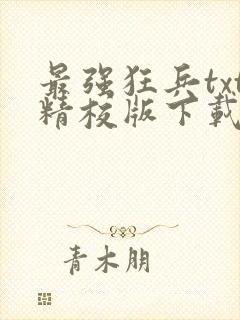 最强狂兵txt
精校版下載
青木朋